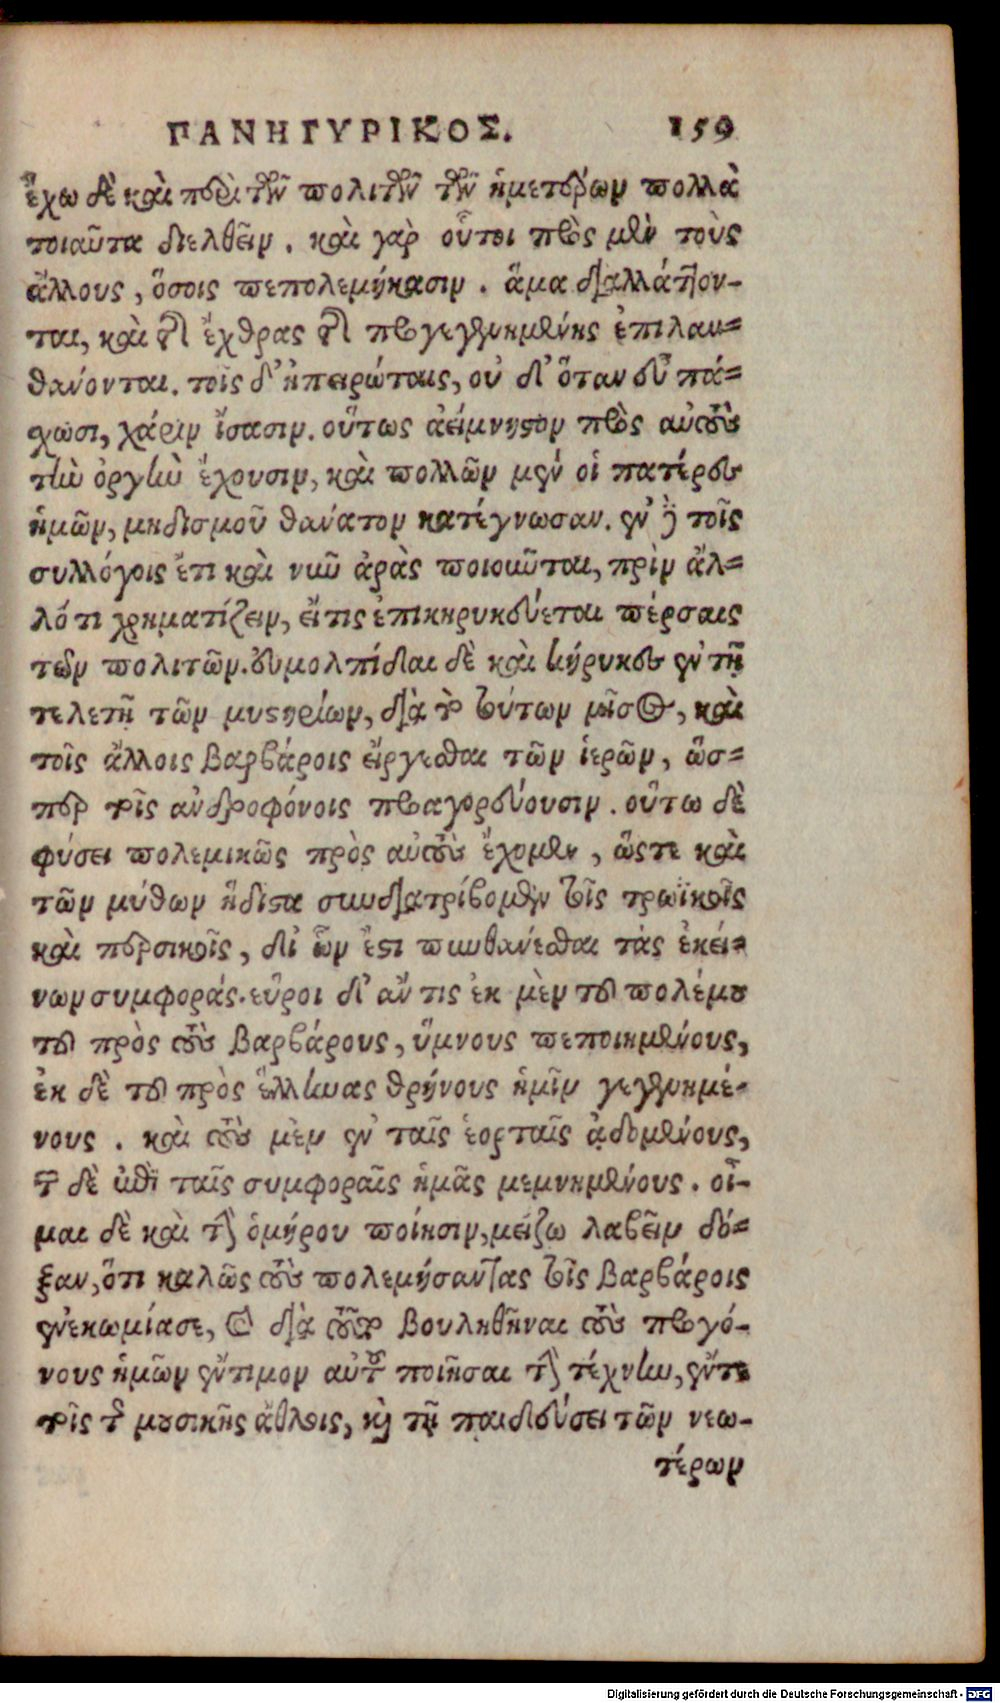 ΠΑΝΗΓΥΡΙΚΟΣ. 159
ἔχω δὲ καὶ περὶ τῶν πολιτῶν τῶν ἡμετέρων πολλὰ
τοιαῦτα διελθεῖν. καὶ γὰρ οὗτοι πρὸς μὲν τοὺς
ἄλλους, ὅσοις πεπολεμήκασιν. ἅμα διαλλάττον-
ται, καὶ τῆς ἔχθρας τῆς προγεγενημένης ἐπιλαν=
θάνονται. τοῖς δ' ἠπειρώταις, οὐ δ' ὅταν εὖ πά=
χωσι, χάριν ἴσασιν. οὕτως ἀείμνηστον πρὸς αὐτοὺς
τὴν ὀργὴν ἔχουσιν, καὶ πολλῶν μὲν οἱ πατέρες
ἡμῶν, μηδισμοῦ θάνατον κατέγνωσαν. ἐν δὲ τοῖς
συλλόγοις ἔτι καὶ νῦν ἀρὰς ποιοῦνται, πρὶν ἄλ=
λό τι χρηματίζειν, εἴ τις ἐπικηρυκεύεται πέρσαις
τῶν πολιτῶν. εὐμολπίδαι δὲ καὶ κήρυκες ἐν τῇ
τελετῇ τῶν μυστηρίων, διὰ τὸ τούτων μῖσος, καὶ
τοῖς ἄλλοις βαρβάροις εἴργεσθαι τῶν ἱερῶν, ὥσ=
περ τοῖς ἀνδροφόνοις προαγορεύουσιν. οὕτω δὲ
φύσει πολεμικῶς πρὸς αὐτοὺς ἔχομεν, ὥστε καὶ
τῶν μύθων ἥδιστα συνδιατρίβομεν τοῖς τρωϊκοῖς
καὶ περσικοῖς, δι' ὧν ἔστι πυνθάνεσθαι τὰς ἐκεί=
νων συμφοράς. εὕροι δ' ἄν τις ἐκ μὲν τοῦ πολέμου
τοῦ πρὸς τοὺς βαρβάρους, ὕμνους πεποιημένους,
ἐκ δὲ τοῦ πρὸς ἕλληνας θρήνους ἡμῖν γεγενημέ-
νους. καὶ τοὺς μὲν ἐν ταῖς ἑορταῖς ᾀδομένους,
τῶν δὲ ἐπὶ ταῖς συμφοραῖς ἡμᾶς μεμνημένους. οἶ-
μαι δὲ καὶ τὴν ὁμήρου ποίησιν, μείζω λαβεῖν δό=
ξαν, ὅτι καλῶς τοὺς πολεμήσαντας τοῖς βαρβάροις
ἐνεκωμίασε, καὶ διὰ τοῦτο βουληθῆναι τοὺς προγό-
νους ἡμῶν ἔντιμον αὐτοῦ ποιῆσαι τὴν τέχνην, ἔν τε
τοῖς τῆς μουσικῆς ἄθλοις, καὶ τῇ παιδεύσει τῶν νεω-
τέρων
Digitalisierung gefördert durch die Deutsche Forschungsgemeinschaft - DFG